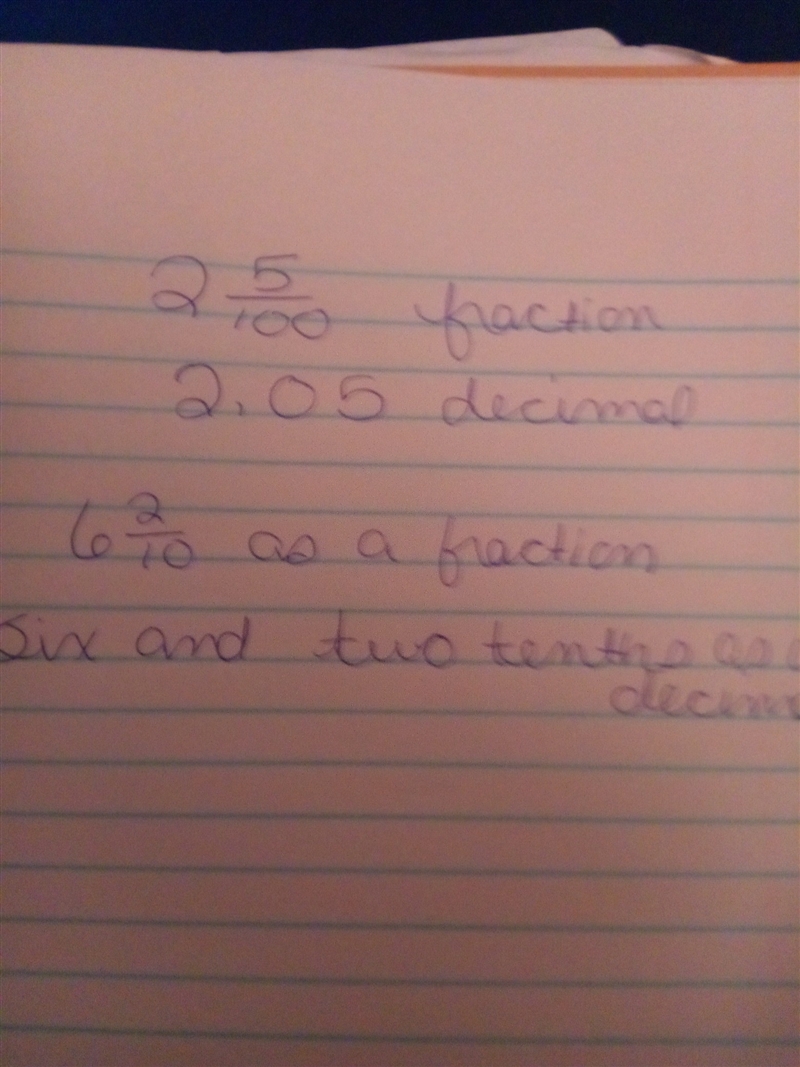 2 5/100 fraction
2.05 decimal
6 2/10 as a fraction
six and two tenths as
decim